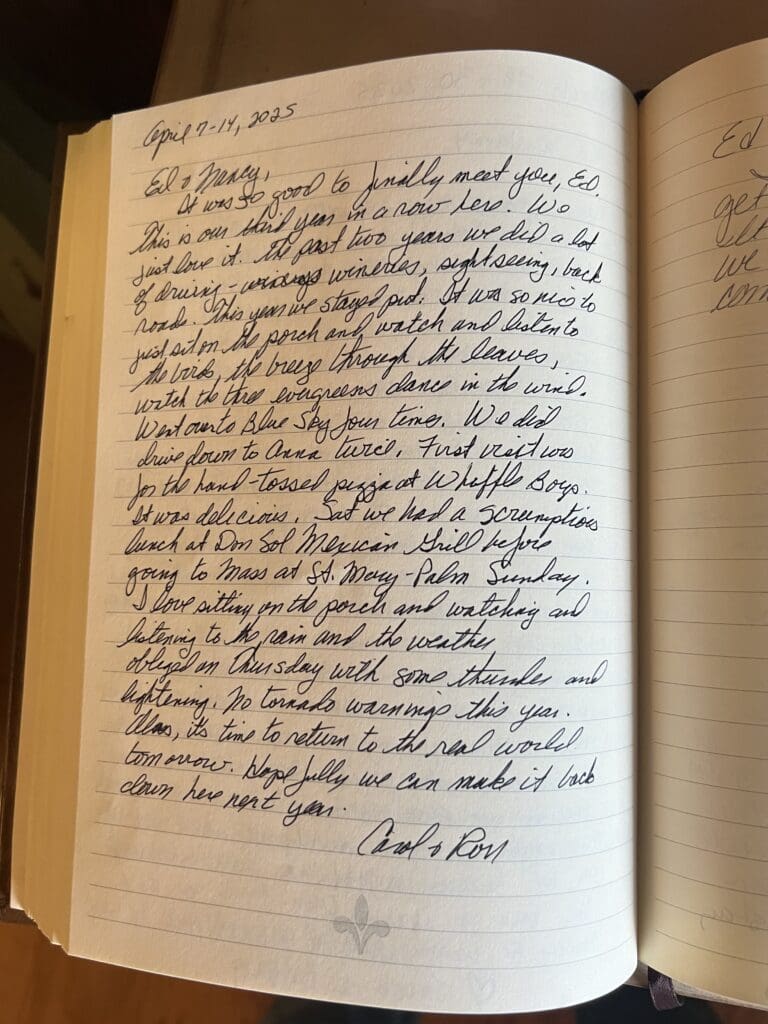 April 7-14, 2025
Ed & Nancy,
It was so good to finally meet you, Ed.
This is our third year in a row here. We
just love it. The past two years we did a lot
of driving - wineries, sightseeing, back
roads. This year we stayed put. It was so nice to
just sit on the porch and watch and listen to
the birds, the breeze through the leaves,
watch the three evergreens dance in the wind.
Went over to Blue Sky four times. We did
drive down to Anna twice. First visit was
for the hand-tossed pizza at Whiffle Boys.
It was delicious. Sat we had a scrumptious
lunch at Don Sol Mexican Grill before
going to Mass at St. Mary - Palm Sunday.
I love sitting on the porch and watching and
listening to the rain and the weather
obliged on Thursday with some thunder and
lightening. No tornado warnings this year.
Alas, it's time to return to the real world
tomorrow. Hopefully we can make it back
down here next year.
Carol & Ron
Ed
get
we
com